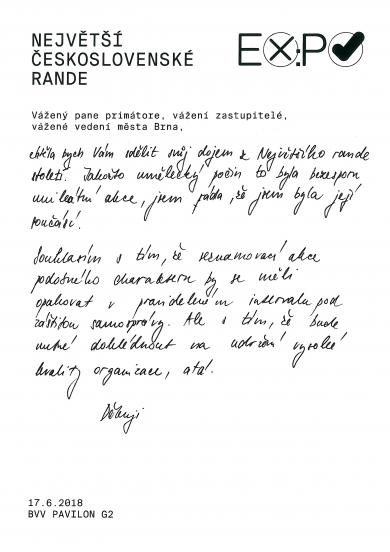 NEJVĚTŠÍ
ČESKOSLOVENSKÉ
RANDE
EX:PO
Vážený pane primátore, vážení zastupitelé,
vážené vedení města Brna,
chtěla bych Vám sdělit svůj dojem z Největšího rande
století. Jakožto umělecký počin to byla bezesporu
unikátní akce, jsem ráda, že jsem byla její
součástí.
Souhlasím s tím, že seznamovací akce
podobného charakteru by se měli
opakovat v pravidelném intervalu pod
záštitou samosprávy. Ale s tím, že bude
nutné dohlédnout na udržení vysoké
kvality organizace, atd.
Děkuji
17.6.2018
BVV PAVILON G2